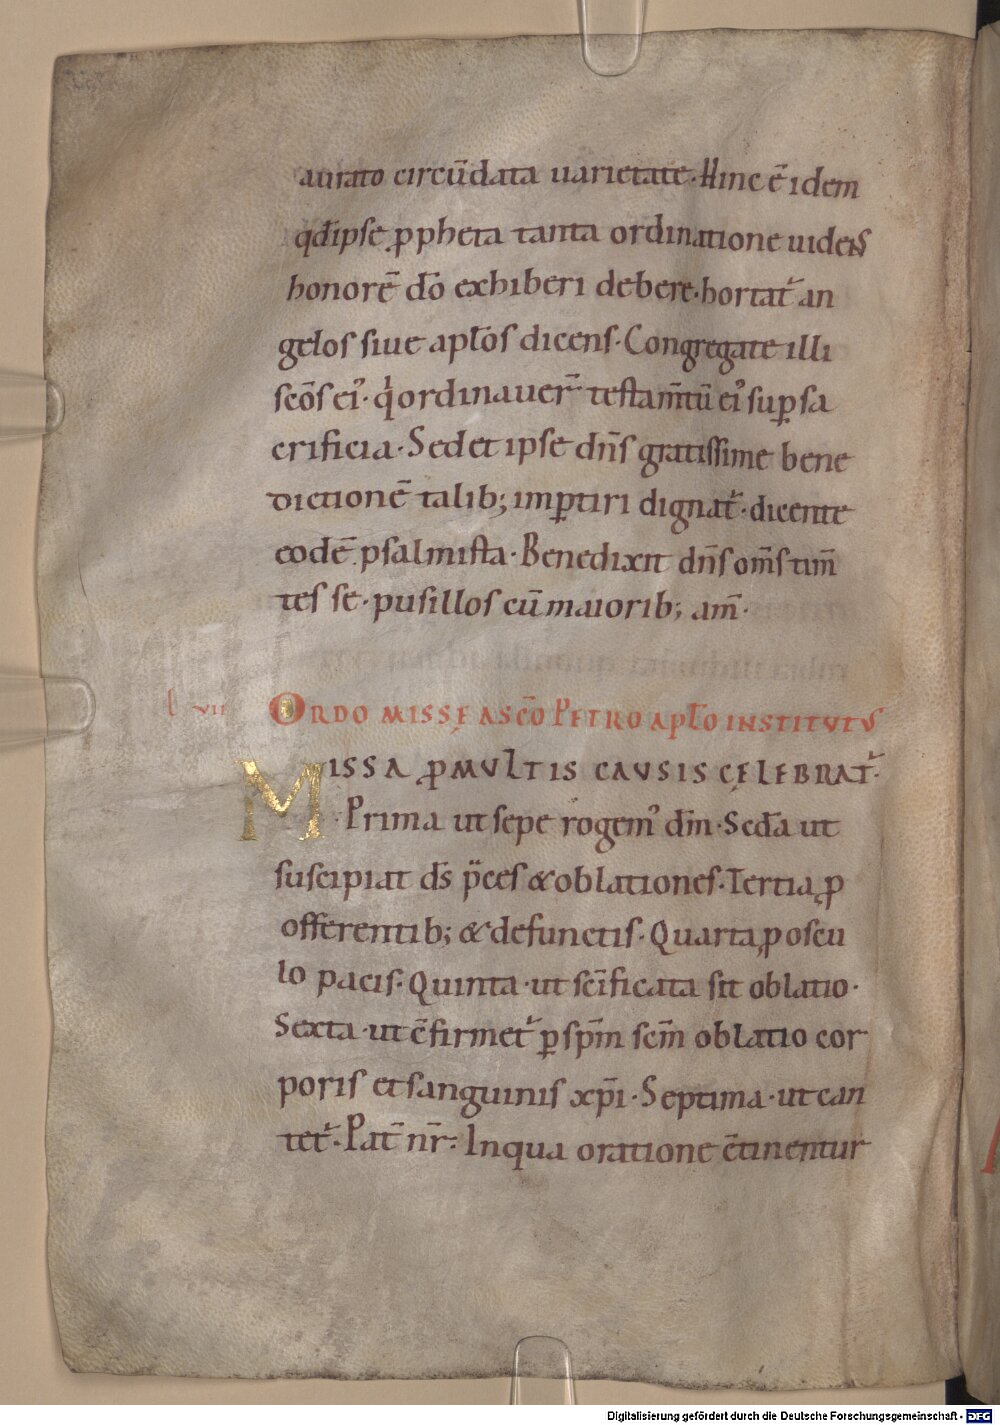 aurato circū data uarietate. Hinc ē idem
qđ ipse ꝓpheta tanta ordinatione uidens
honorē dō exhiberi debere. hortat᷑ an
gelos siue apłos dicens. Congregate illi
scōs ei᷒. qͥ ordinauer̄ testam̄tū ei᷒ suꝑ sa
crificia. Sed et ipse dn̄s gratissime bene
dictionē talib; imꝑtiri dignat᷑. dicente
eodē psalmista. Benedixit dn̄s om̄s tim̄
tes se. pusillos cū maiorib; am̄.
l vii ORDO MISSĘ A SCŌ PETRO APŁO INSTITVTVS
MISSA ꝓ MVLTIS CAVSIS CĘLEBRAT᷑.
Prima ut sepe rogem᷒ dm̄. Scđa ut
suscipiat ds̄ p̄ces & oblationes. Tertia ꝓ
offerentib; & defunctis. Quarta ꝓ oscu
lo pacis. Quinta. ut scīficata sit oblatio.
Sexta. ut c̄firmet᷑ ꝑ sp̄m scm̄ oblatio cor
poris et sanguinis xp̄i. Septima. ut can
tet᷑. Pat̄ nr̄. In qua oratione c̄tinentur
Digitalisierung gefördert durch die Deutsche Forschungsgemeinschaft - DFG